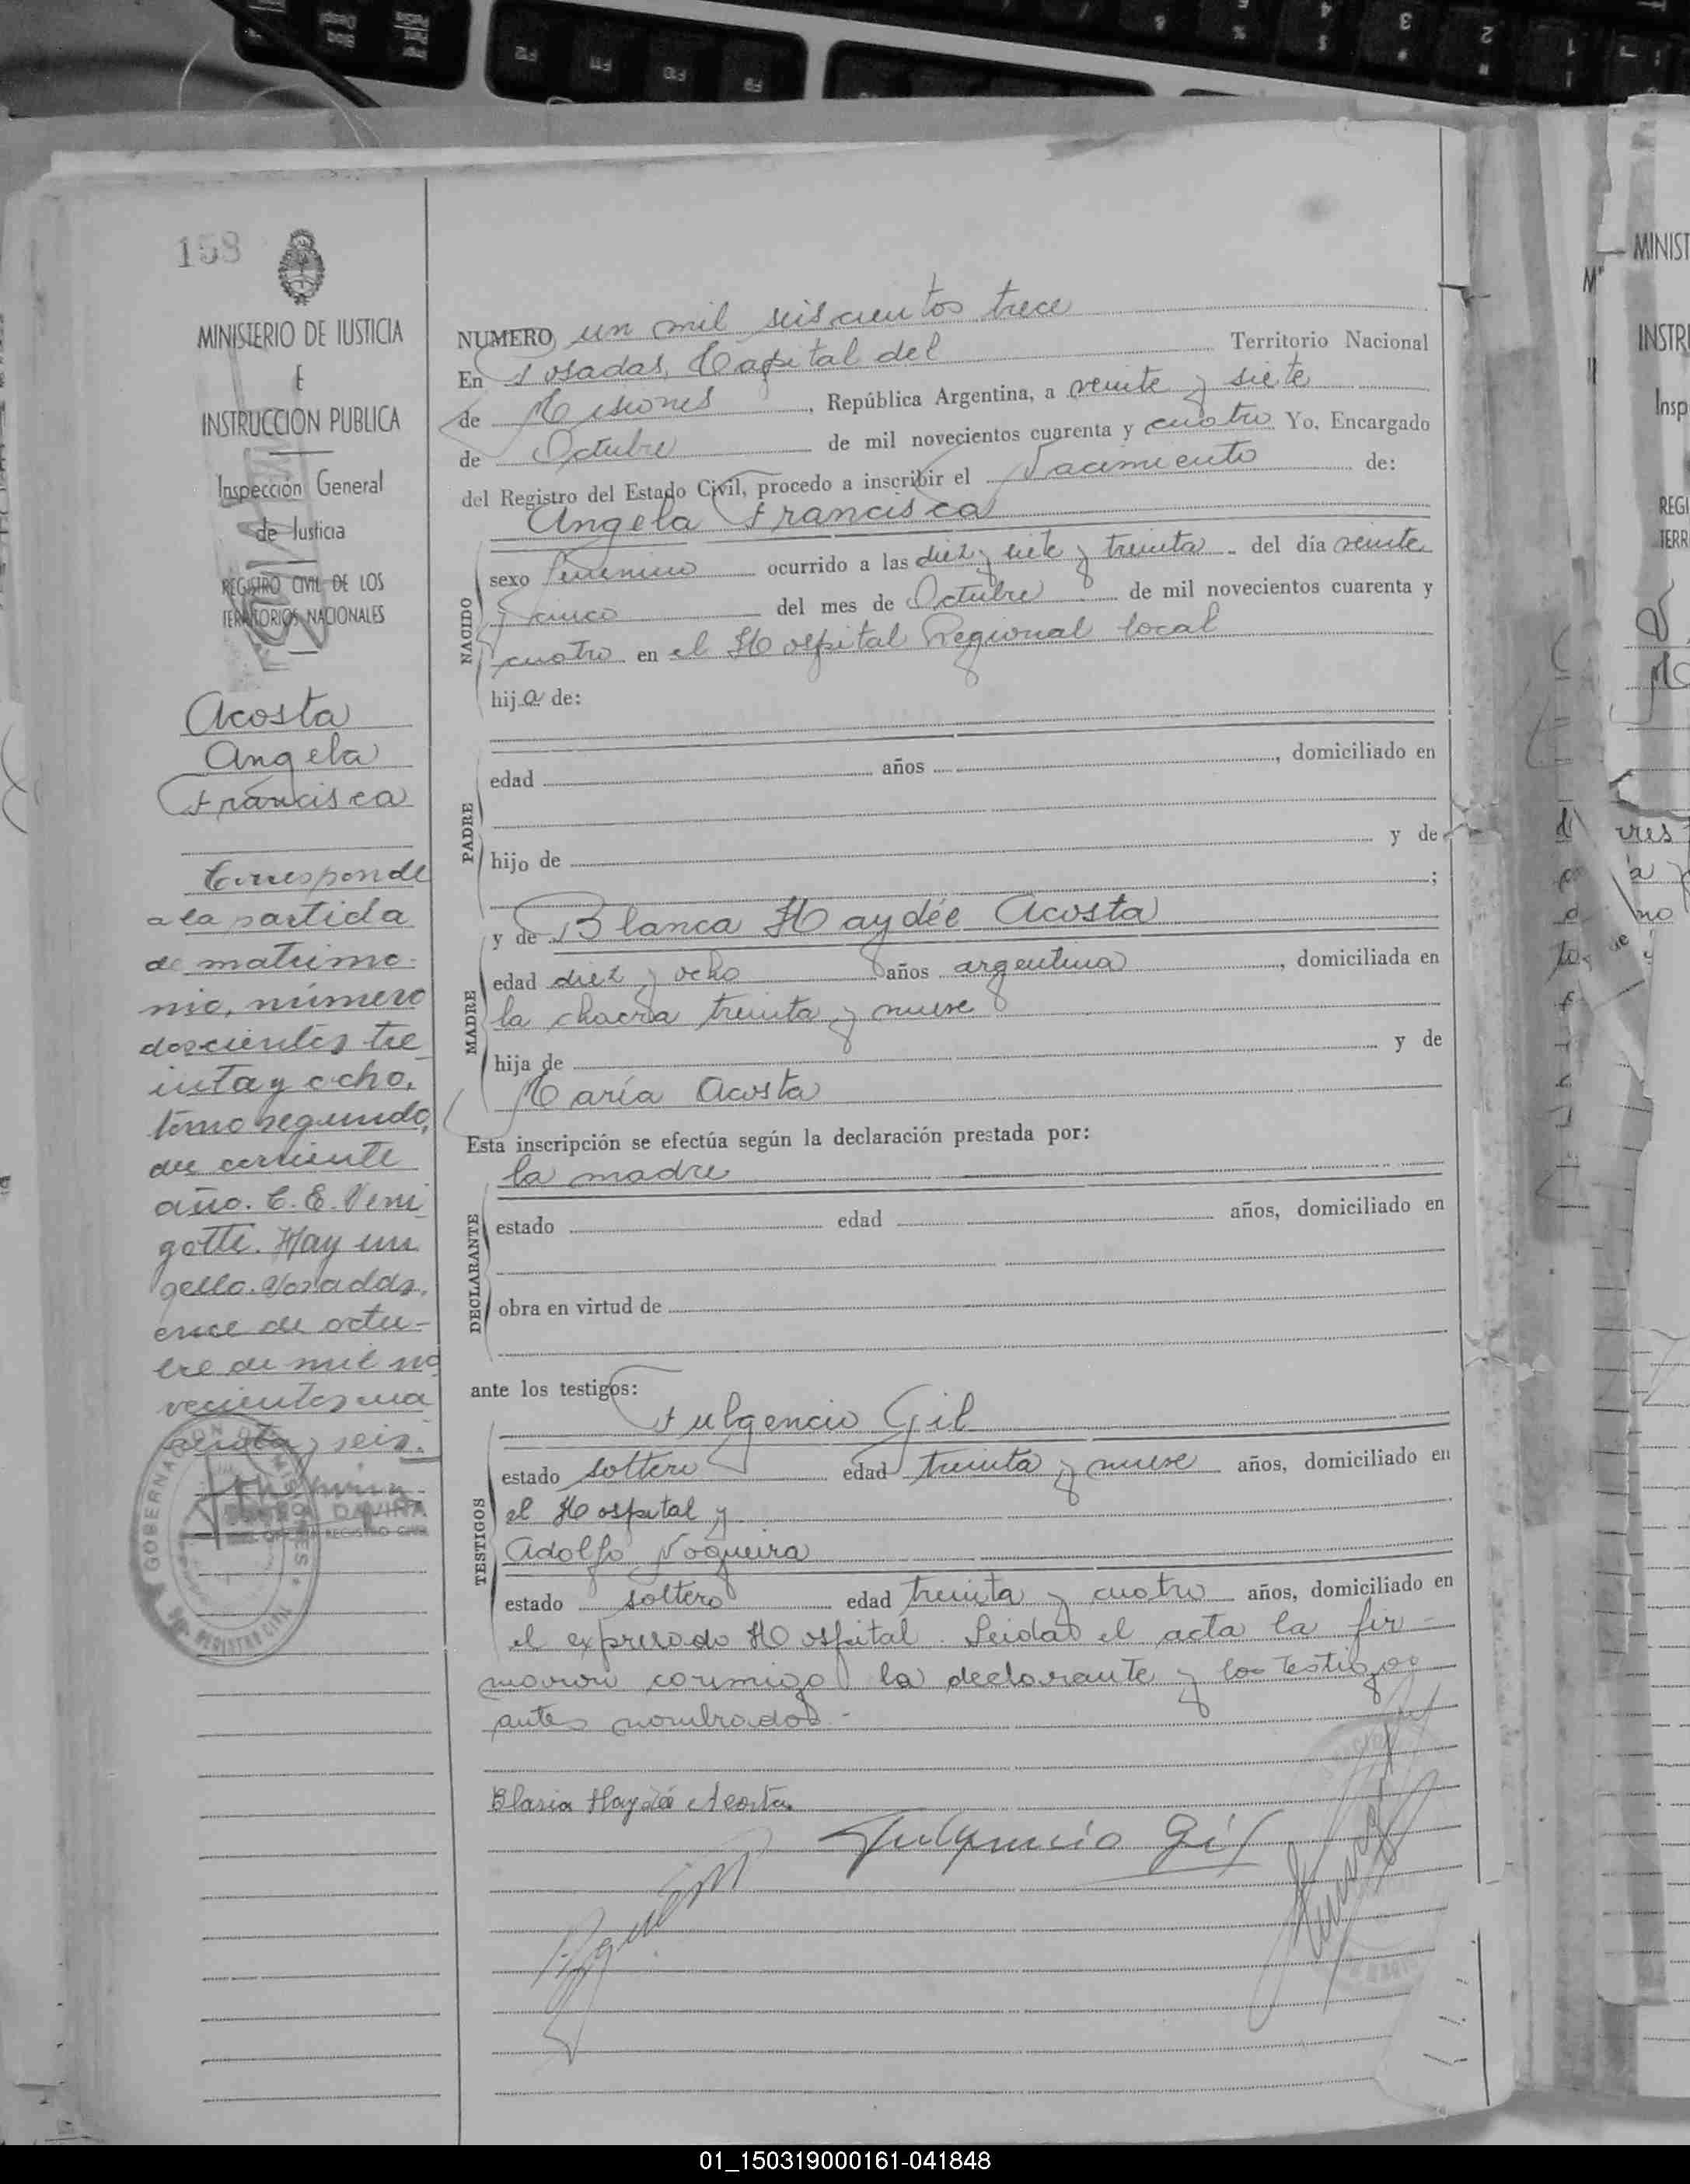 158
MINISTERIO DE JUSTICIA
E
INSTRUCCION PUBLICA
Inspección General
de Justicia
REGISTRO CIVIL DE LOS
TERRITORIOS NACIONALES
Acosta
Angela
Francisca
Corresponde
a la partida
de matrimo-
nio, número
doscientos tre
inta y ocho,
tomo segundo,
del corriente
año. C. E. Veni
gotti. Hay un
sello. Posadas,
once de octu-
bre de mil no
vecientos cua
renta y seis.
NUMERO un mil seiscientos trece
En Posadas, Capital del Territorio Nacional
de Misiones, República Argentina, a veinte y siete
de Octubre de mil novecientos cuarenta y cuatro Yo, Encargado
del Registro del Estado Civil, procedo a inscribir el Nacimiento de:
Angela Francisca
NACIDO
sexo femenino ocurrido a las diez y siete y treinta del día veinte
y cinco del mes de Octubre de mil novecientos cuarenta y
cuatro en el Hospital Regional local
hija de:
PADRE
edad años , domiciliado en
hijo de y de
;
y de Blanca Haydée Acosta
MADRE
edad diez y ocho años argentina , domiciliada en
la chacra treinta y nueve
hija de y de
María Acosta
Esta inscripción se efectúa según la declaración prestada por:
la madre
DECLARANTE
estado edad años, domiciliado en
obra en virtud de
ante los testigos:
Fulgencio Gil
TESTIGOS
estado soltero edad treinta y nueve años, domiciliado en
el Hospital y
Adolfo Nogueira
estado soltero edad treinta y cuatro años, domiciliado en
el expresado Hospital. Leida el acta la fir-
maron conmigo la declarante y los testigos
antes nombrados.-
Blanca Haydée Acosta
Fulgencio Gil
MINIST
INSTR
Insp
REGI
TERR
01_150319000161-041848